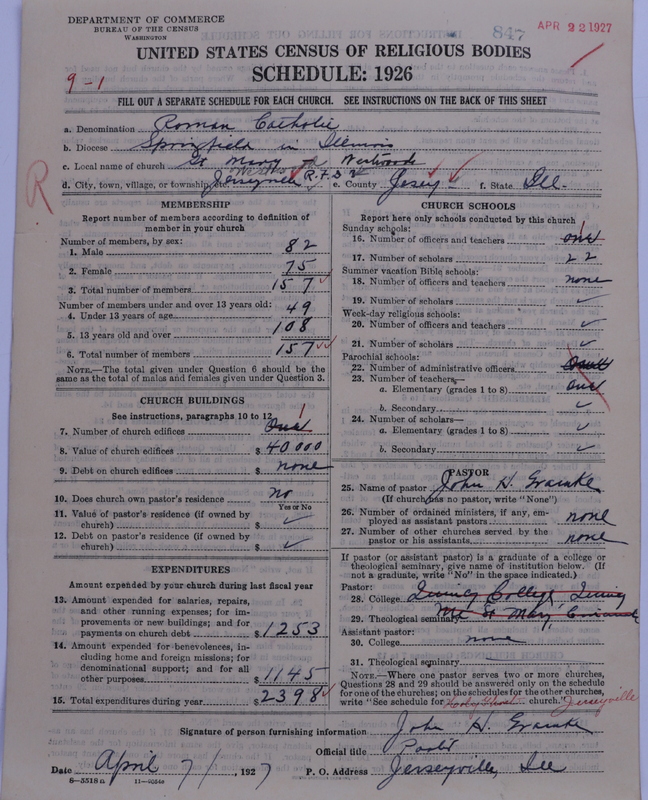 DEPARTMENT OF COMMERCE
BUREAU OF THE CENSUS
WASHINGTON
847
APR 22 1927
UNITED STATES CENSUS OF RELIGIOUS BODIES
SCHEDULE: 1926
9-1
FILL OUT A SEPARATE SCHEDULE FOR EACH CHURCH. SEE INSTRUCTIONS ON THE BACK OF THIS SHEET
a. Denomination Roman Catholic
b. Diocese Springfield in Illinois
c. Local name of church St Mary
d. City, town, village, or township Jerseyville R.F.D. e. County Jersey f. State Ill.
R
MEMBERSHIP
Report number of members according to definition of member in your church
Number of members, by sex:
1. Male 82
2. Female 75
3. Total number of members 157
Number of members under and over 13 years old:
4. Under 13 years of age 49
5. 13 years old and over 108
6. Total number of members 157
NOTE.—The total given under Question 6 should be the same as the total of males and females given under Question 3.
CHURCH BUILDINGS
See instructions, paragraphs 10 to 12
7. Number of church edifices One 1
8. Value of church edifices $40000
9. Debt on church edifices $ none
10. Does church own pastor's residence no
Yes or No
11. Value of pastor's residence (if owned by church) $ ✓
12. Debt on pastor's residence (if owned by church) $ ✓
EXPENDITURES
Amount expended by your church during last fiscal year
13. Amount expended for salaries, repairs, and other running expenses; for improvements or new buildings; and for payments on church debt $1253
14. Amount expended for benevolences, including home and foreign missions; for denominational support; and for all other purposes $1145
15. Total expenditures during year $2398
CHURCH SCHOOLS
Report here only schools conducted by this church
Sunday schools:
16. Number of officers and teachers one 1
17. Number of scholars 22
Summer vacation Bible schools:
18. Number of officers and teachers none
19. Number of scholars ✓
Week-day religious schools:
20. Number of officers and teachers ✓
21. Number of scholars ✓
Parochial schools:
22. Number of administrative officers
23. Number of teachers—
a. Elementary (grades 1 to 8) one
b. Secondary ✓
24. Number of scholars—
a. Elementary (grades 1 to 8) ✓
b. Secondary ✓
PASTOR
25. Name of pastor John H.
(If church has no pastor, write "None")
26. Number of ordained ministers, if any, employed as assistant pastors none
27. Number of other churches served by the pastor or his assistants none
If pastor (or assistant pastor) is a graduate of a college or theological seminary, give name of institution below. (If not a graduate, write "No" in the space indicated.)
Pastor:
28. College Quincy College, Quincy
29. Theological seminary Mt St Mary,
Assistant pastor:
30. College none
31. Theological seminary
NOTE.—Where one pastor serves two or more churches, Questions 28 and 29 should be answered only on the schedule for one of the churches; on the schedules for the other churches, write "See schedule for Holy Ghost church." Jerseyville
Signature of person furnishing information John H.
Official title Pastor
Date April 7, 1927 P. O. Address Jerseyville, Ill
8—5518a 11—4054a